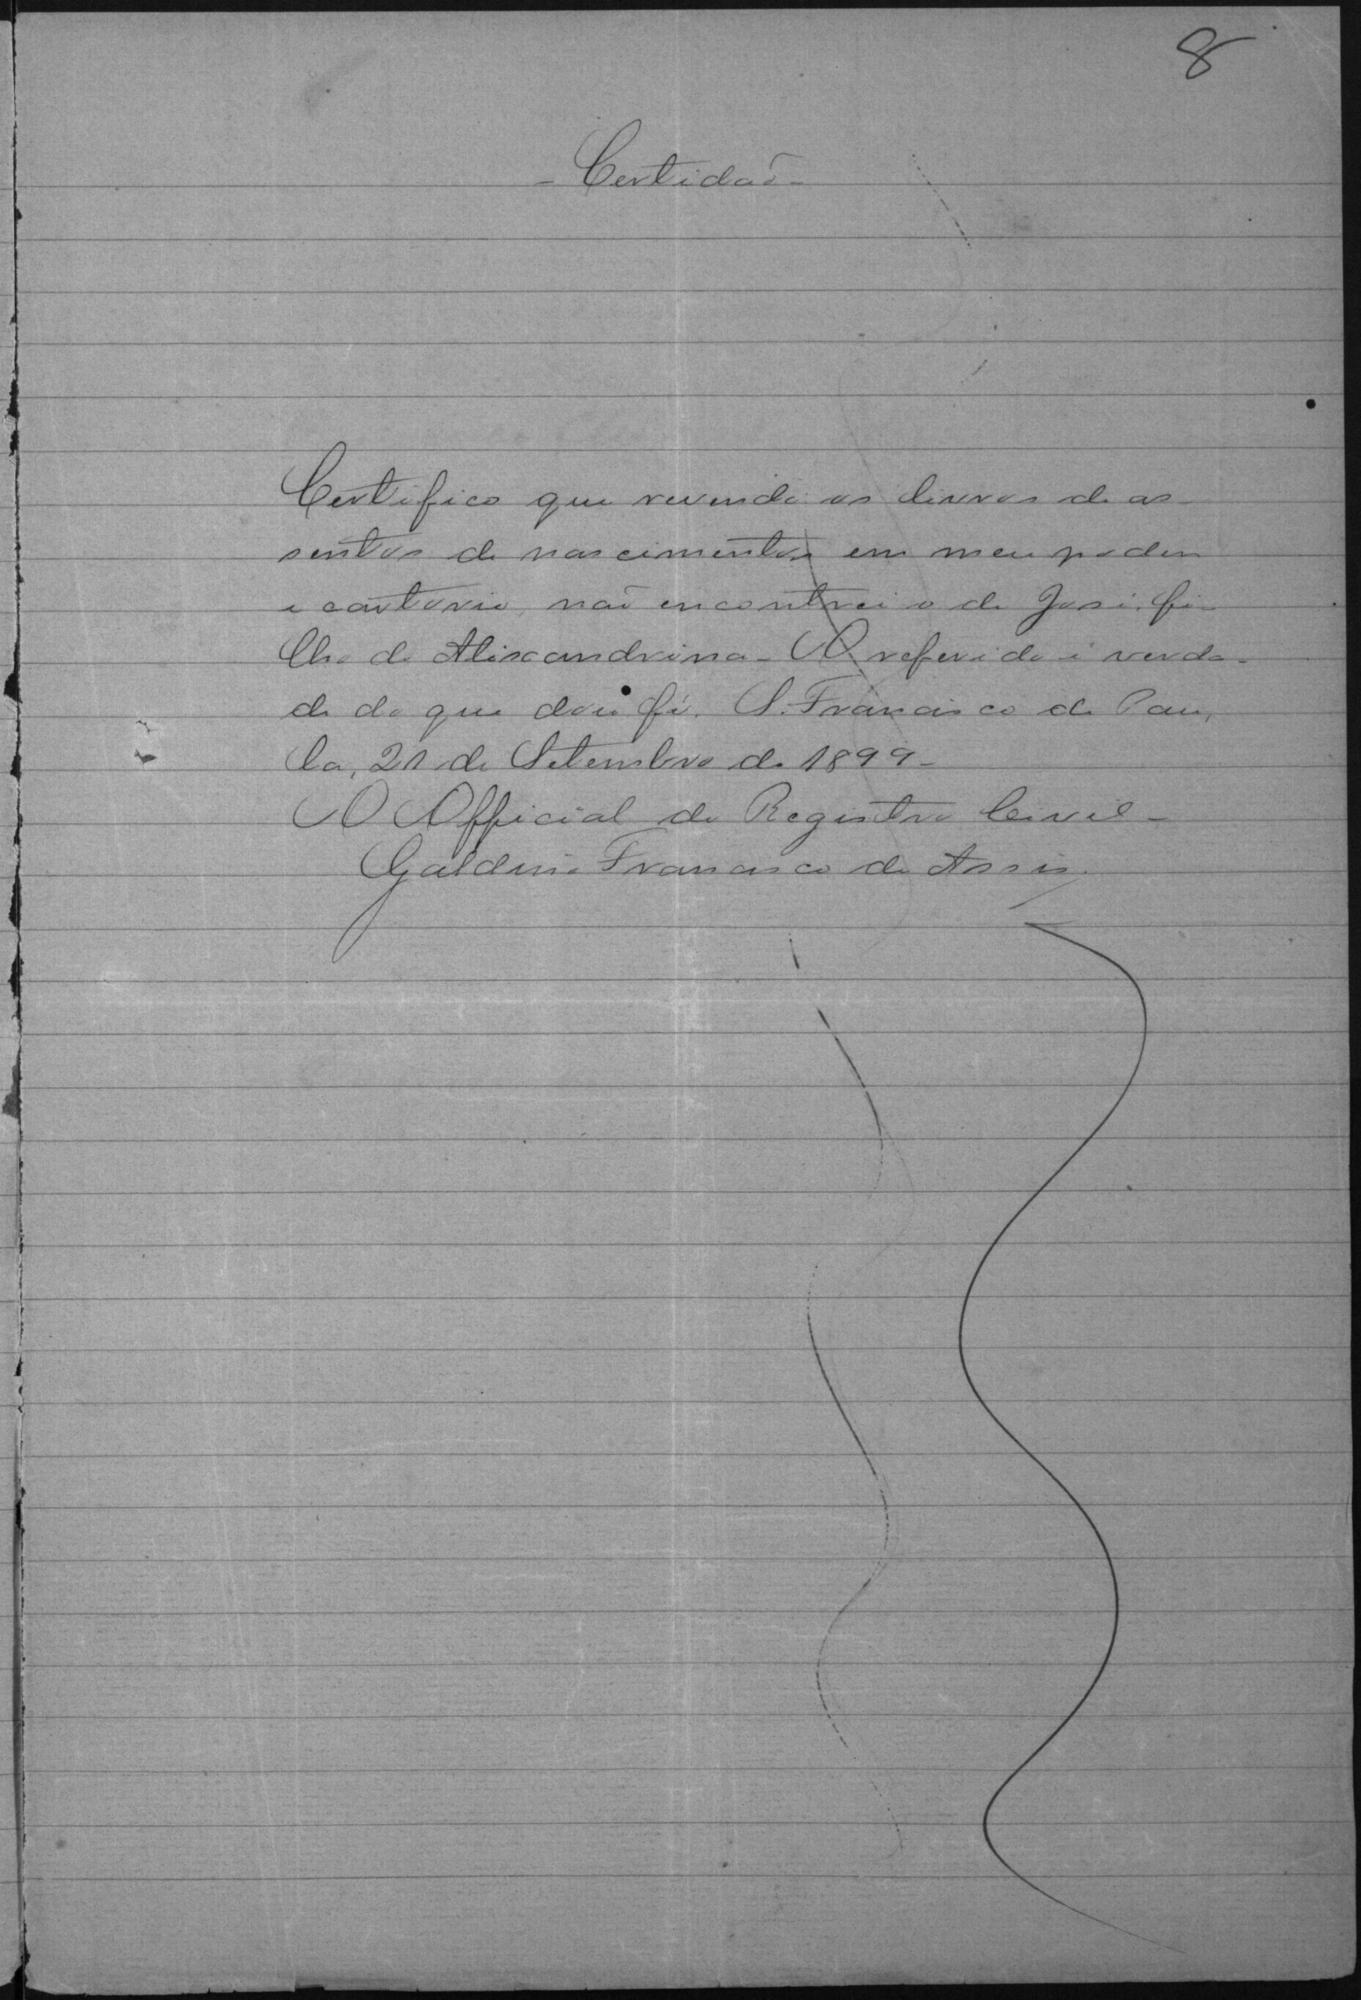 8
- Certidaõ -
Certifico que revendo os livros de as-
sentos de nascimentos em meu poder
e cartorio, naõ encontrei o de José, fi-
lho de Alixandrina - O referido é verda-
de do que dou fé. S. Francisco de Pau,
la, 21 de Setembro de 1899 -
O Official do Registro Civil -
Galdino Francisco de Assis.